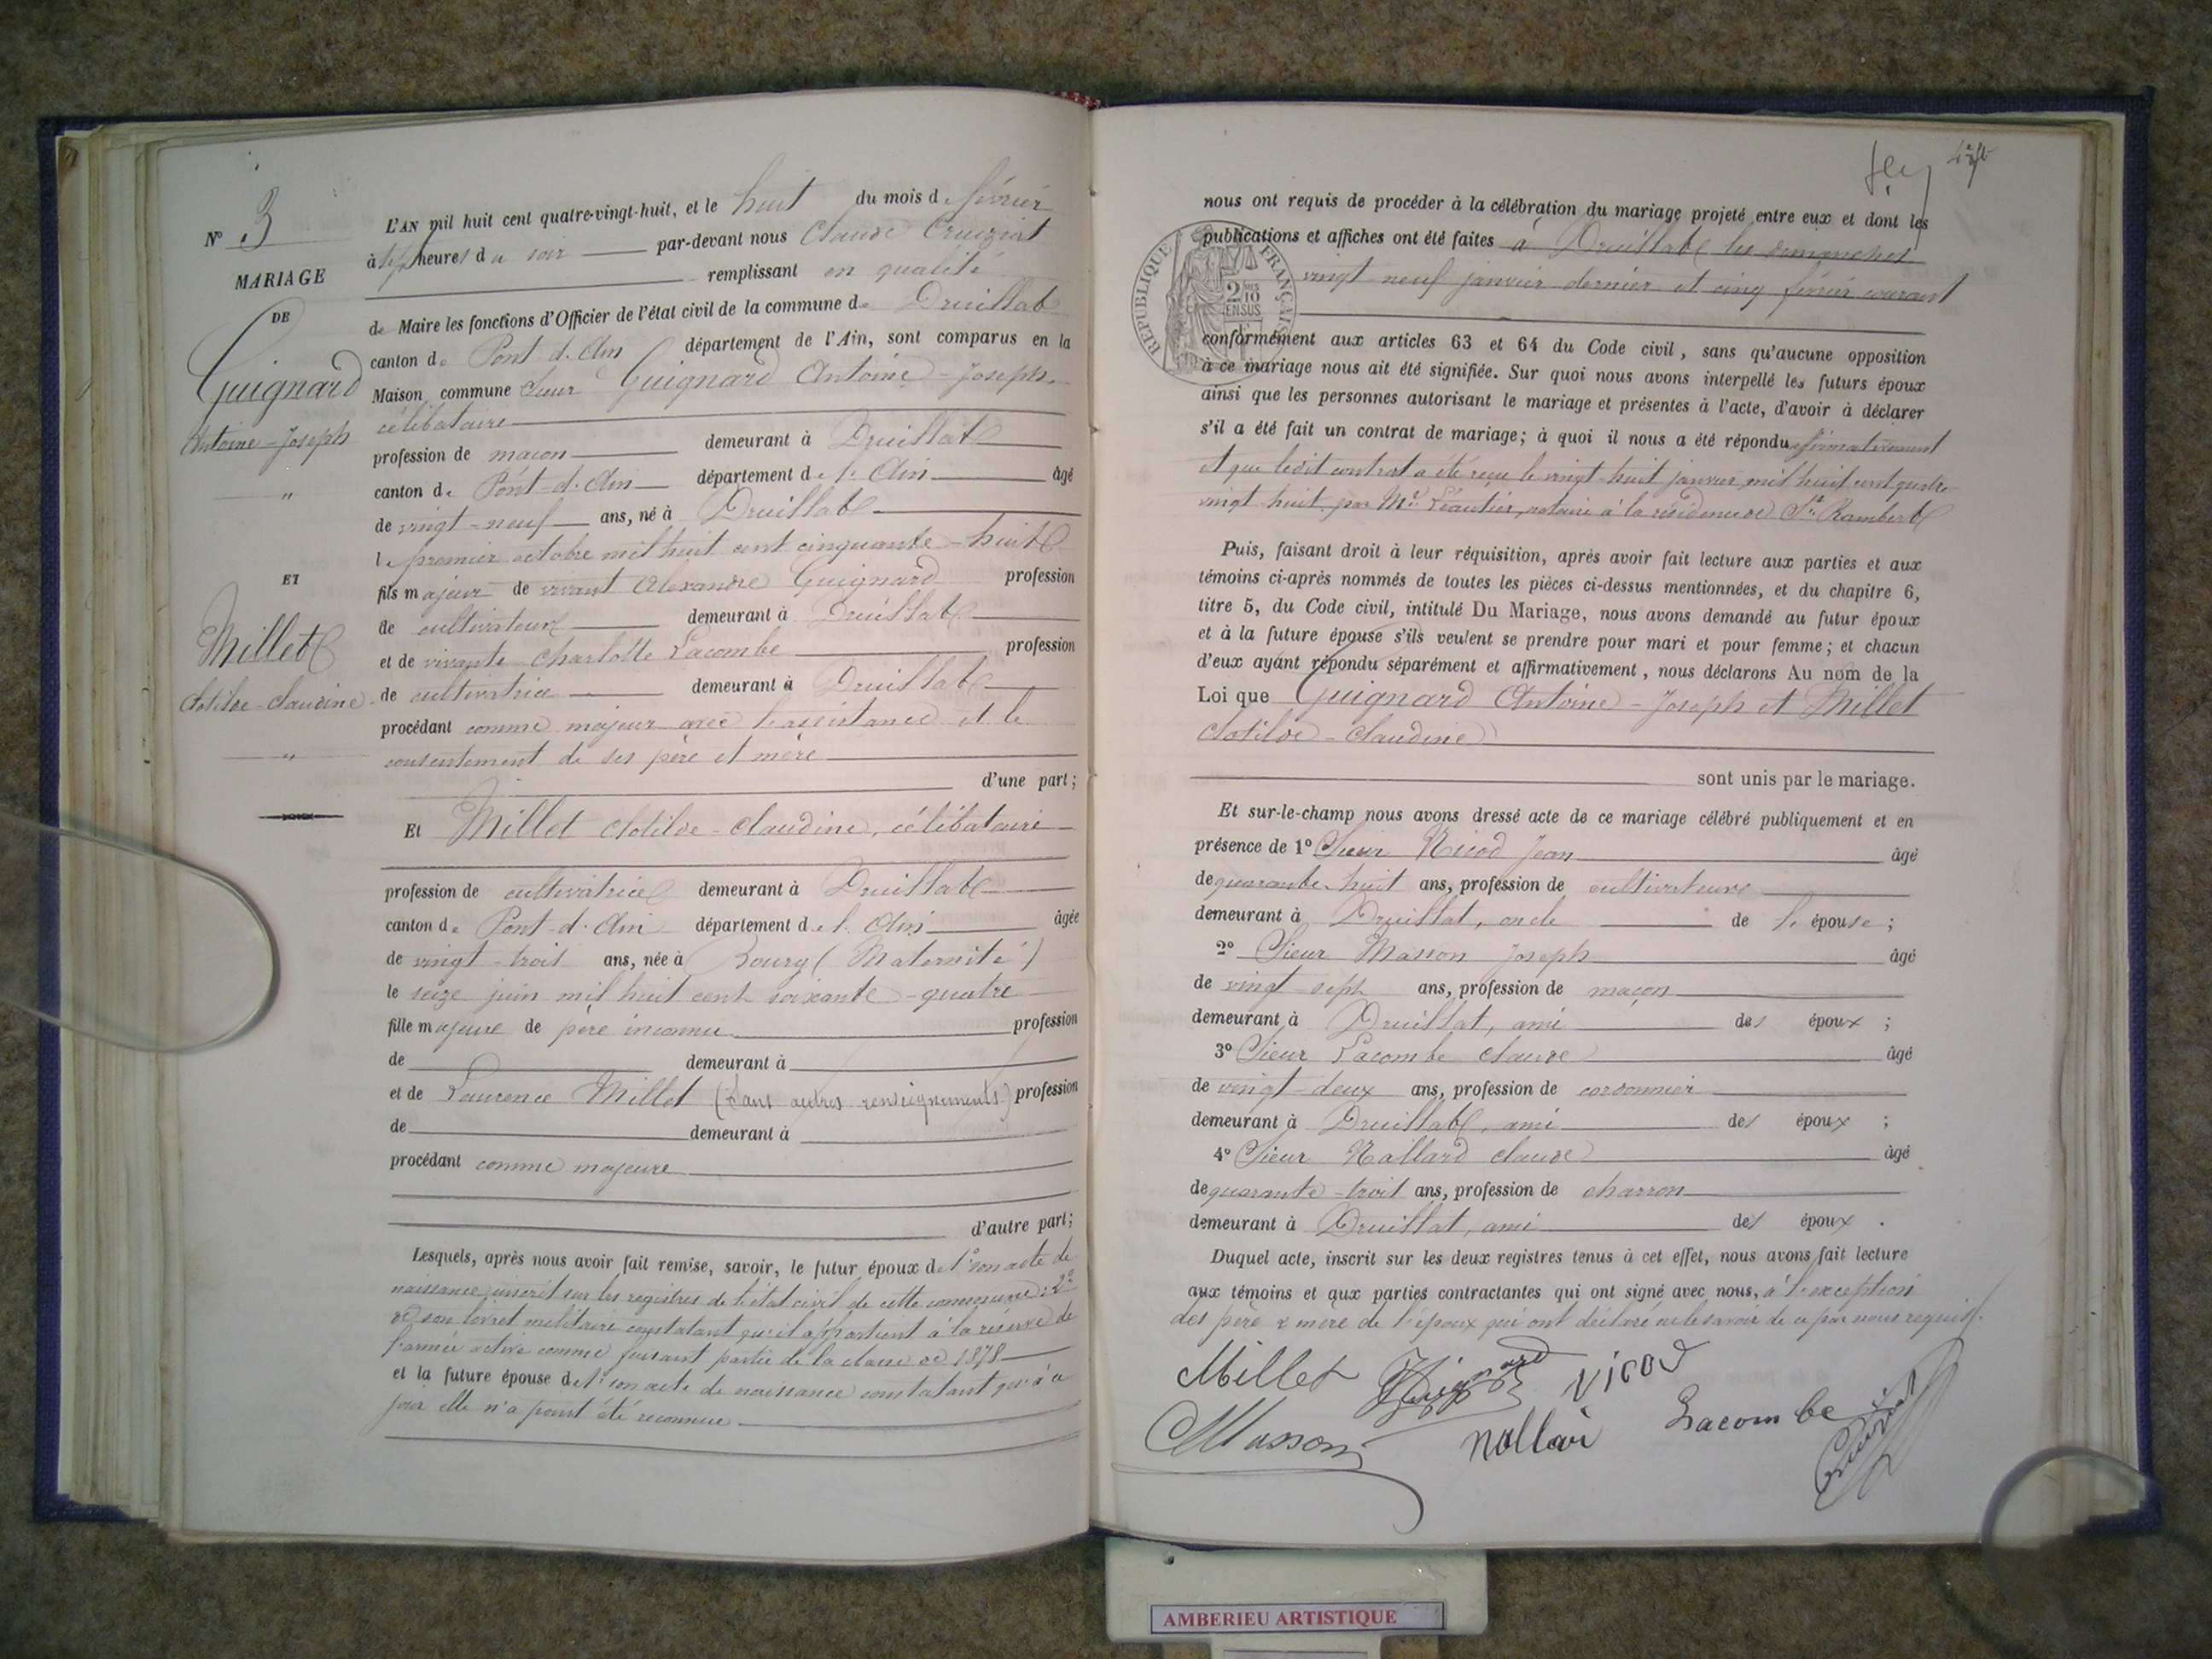 N° 3
MARIAGE
DE
Guignard
Antoine-Joseph
"
ET
Millet
Clotilde-Claudine
"
L'AN mil huit cent quatre-vingt-huit, et le huit du mois de février
à sept heures du soir par-devant nous Claude Cruiziat
remplissant en qualité
de Maire les fonctions d'Officier de l'état civil de la commune de Druillat
canton de Pont d'Ain département de l'Ain, sont comparus en la
Maison commune Sieur Guignard Antoine-Joseph.
célibataire
profession de maçon demeurant à Druillat
canton de Pont-d'Ain département de l'Ain âgé
de vingt-neuf ans, né à Druillat
le premier octobre mil huit cent cinquante-huit
fils majeur de vivant Alexandre Guignard profession
de cultivateur demeurant à Druillat
et de vivante Charlotte Lacombe profession
de cultivatrice demeurant à Druillat
procédant comme majeur avec l'assistance et le
consentement de ses père et mère
d'une part;
Et Millet Clotilde-Claudine, célibataire
profession de cultivatrice demeurant à Druillat
canton de Pont-d'Ain département de l'Ain âgée
de vingt-trois ans, née à Bourg (Maternité)
le seize juin mil huit cent soixante-quatre
fille majeure de père inconnu profession
de demeurant à
et de Laurence Millet (Sans autres renseignements) profession
de demeurant à
procédant comme majeure
d'autre part;
Lesquels, après nous avoir fait remise, savoir, le futur époux de 1° son acte de
naissance inscrit sur les registres de l'état civil de cette commune; 2°
de son livret militaire constatant qu'il appartient à la réserve de
l'armée active comme faisant partie de la classe de 1878
et la future épouse de 1° son acte de naissance constatant qu'à ce
jour elle n'a point été reconnue
nous ont requis de procéder à la célébration du mariage projeté entre eux et dont les
publications et affiches ont été faites à Druillat les dimanches
vingt-neuf janvier dernier et cinq février courant
RÉPUBLIQUE FRANÇAISE
2/10 EN SUS
conformément aux articles 63 et 64 du Code civil, sans qu'aucune opposition
à ce mariage nous ait été signifiée. Sur quoi nous avons interpellé les futurs époux
ainsi que les personnes autorisant le mariage et présentes à l'acte, d'avoir à déclarer
s'il a été fait un contrat de mariage; à quoi il nous a été répondu affirmativement
et que ledit contrat a été reçu le vingt-huit janvier mil huit cent quatre-
vingt-huit par Me Léautier, notaire à la résidence de St Rambert
Puis, faisant droit à leur réquisition, après avoir fait lecture aux parties et aux
témoins ci-après nommés de toutes les pièces ci-dessus mentionnées, et du chapitre 6,
titre 5, du Code civil, intitulé Du Mariage, nous avons demandé au futur époux
et à la future épouse s'ils veulent se prendre pour mari et pour femme; et chacun
d'eux ayant répondu séparément et affirmativement, nous déclarons Au nom de la
Loi que Guignard Antoine-Joseph et Millet
Clotilde-Claudine
sont unis par le mariage.
Et sur-le-champ nous avons dressé acte de ce mariage célébré publiquement et en
présence de 1° Sieur Nicod Jean âgé
de quarante-huit ans, profession de cultivateur
demeurant à Druillat, oncle de l'épouse;
2° Sieur Masson Joseph âgé
de vingt-sept ans, profession de maçon
demeurant à Druillat, ami des époux;
3° Sieur Lacombe Claude âgé
de vingt-deux ans, profession de cordonnier
demeurant à Druillat, ami des époux;
4° Sieur Nallard Claude âgé
de quarante-trois ans, profession de charron
demeurant à Druillat, ami des époux.
Duquel acte, inscrit sur les deux registres tenus à cet effet, nous avons fait lecture
aux témoins et aux parties contractantes qui ont signé avec nous, à l'exception
des père & mère de l'époux qui ont déclaré ne le savoir de ce par nous requis.
Millet Guignard Nicod
Masson Lacombe Cruiziat
AMBERIEU ARTISTIQUE